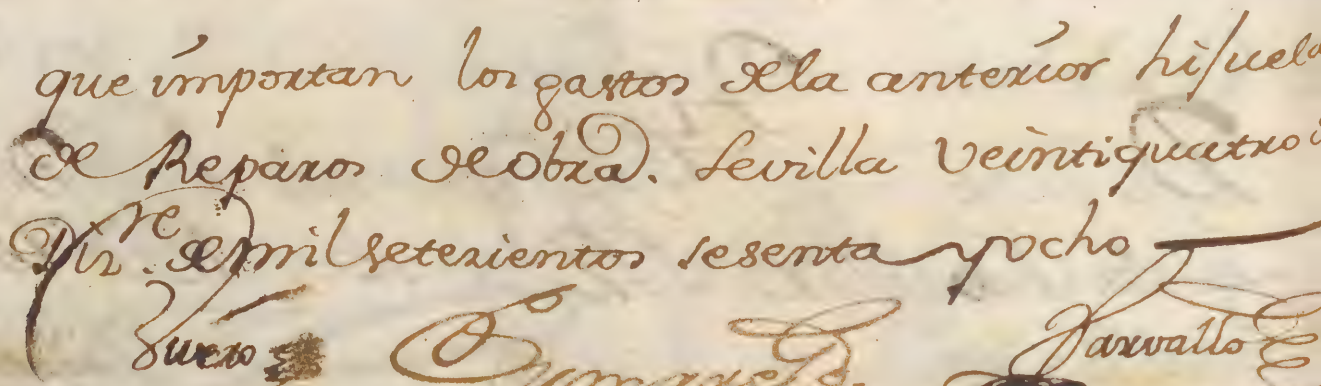 que importan los gastos dela anterior hijuela
de Reparos de obra. Sevilla Veintiquatro
Diz.re de mil setezientos sesenta y ocho
Carvallo